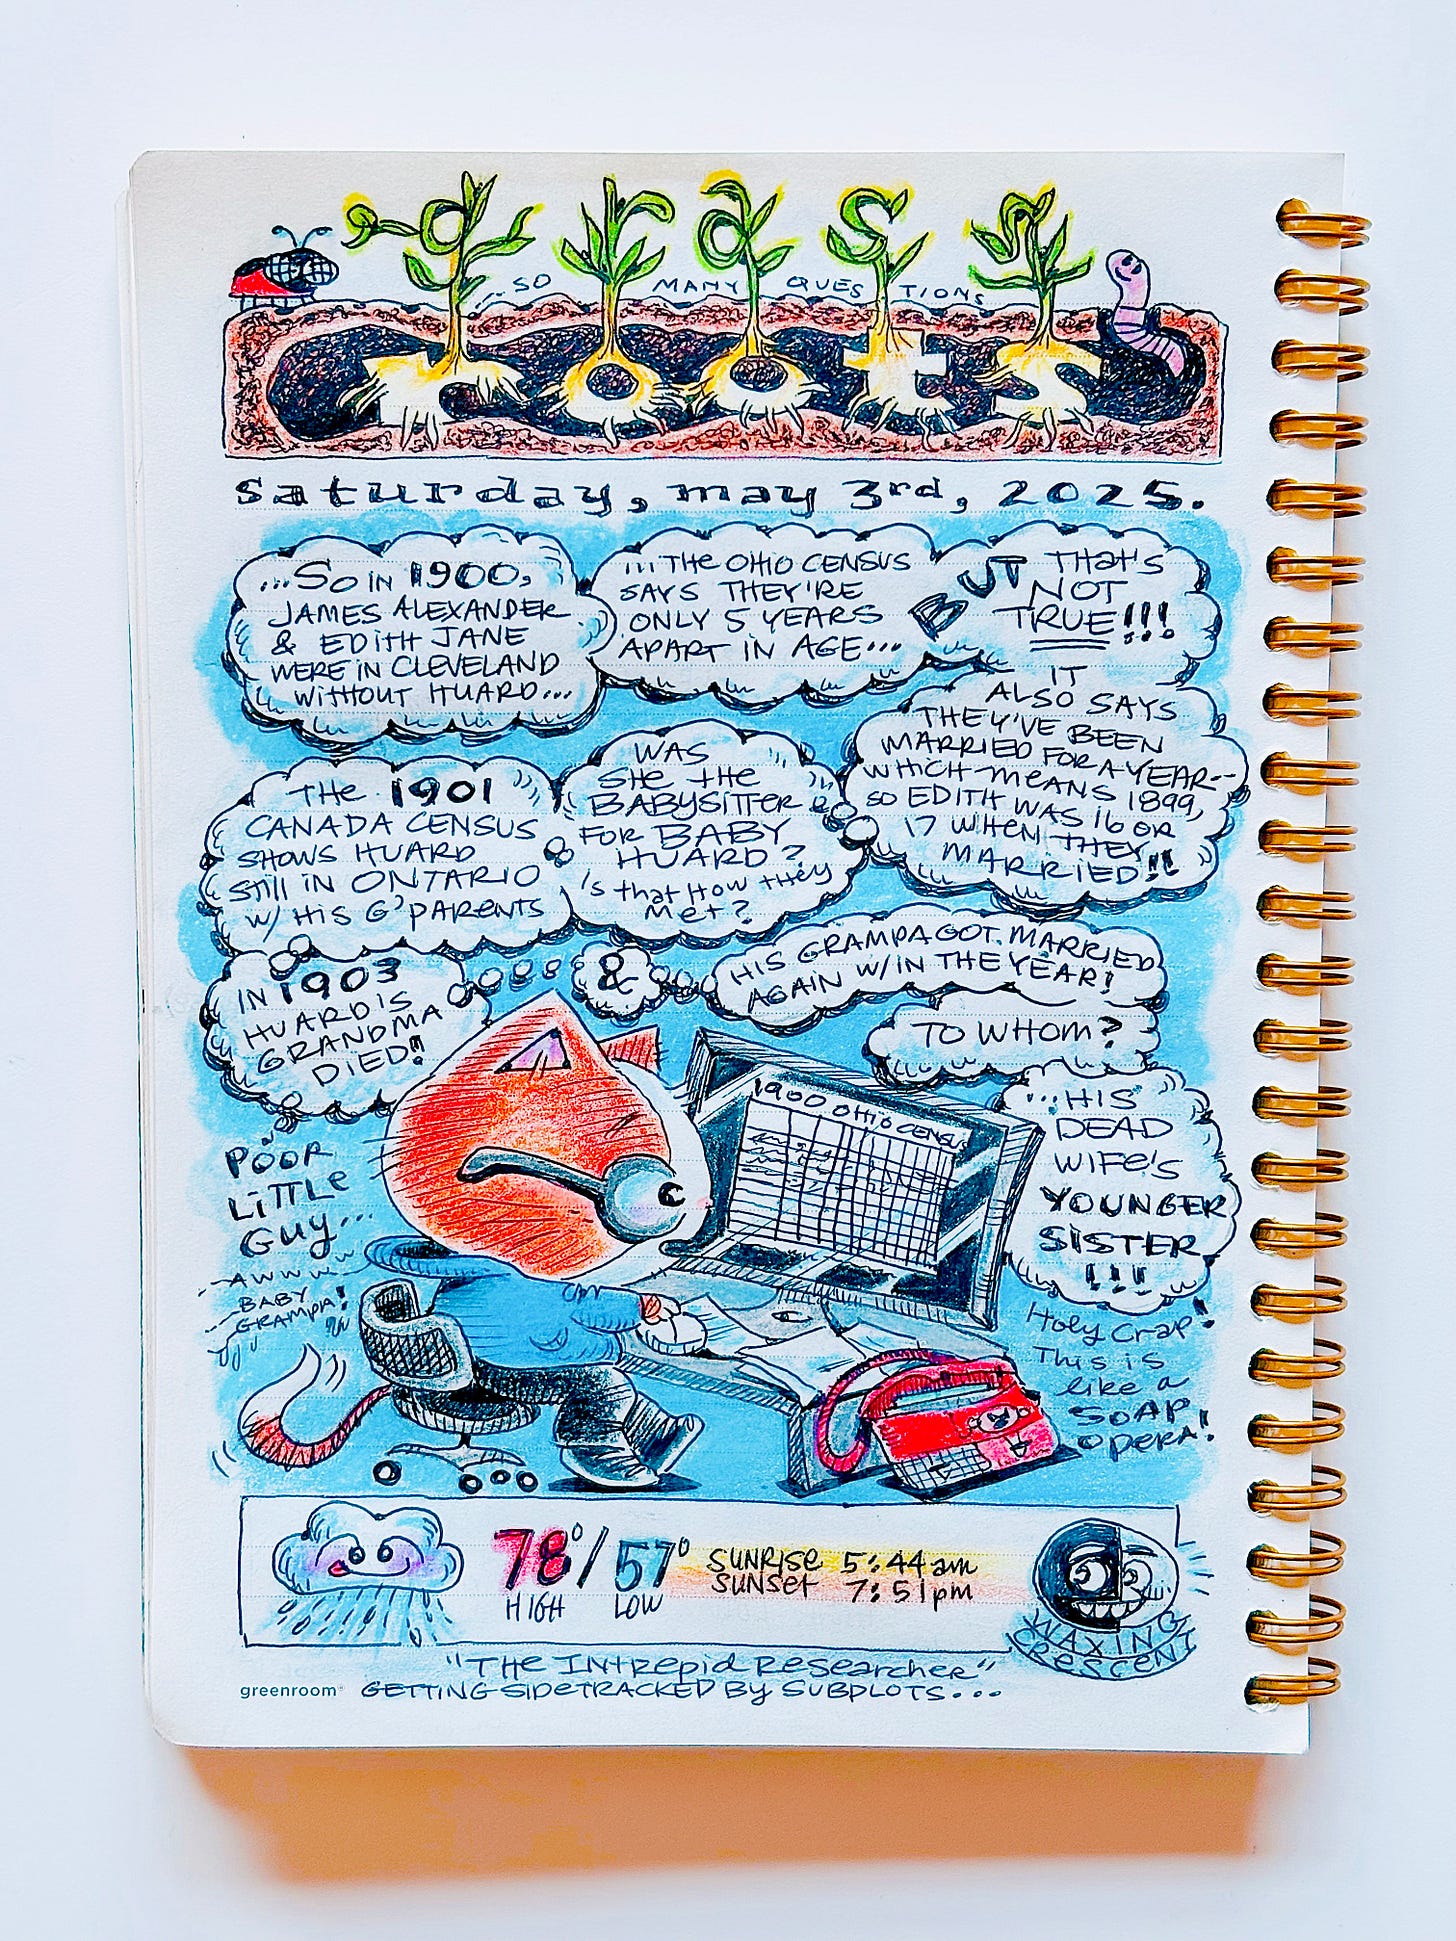 grass
... SO MANY QUESTIONS
roots
saturday, may 3rd, 2025.
...SO IN 1900,
JAMES ALEXANDER
& EDITH JANE
WERE IN CLEVELAND
WITHOUT HUARD...
...THE OHIO CENSUS
SAYS THEY'RE
ONLY 5 YEARS
APART IN AGE...
BUT THAT'S
NOT
TRUE!!!
IT
ALSO SAYS
THEY'VE BEEN
MARRIED FOR A YEAR--
WHICH MEANS 1899,
SO EDITH WAS 16 OR
17 WHEN THEY
MARRIED!!
WAS
SHE THE
BABYSITTER
FOR BABY
HUARD?
Is that HOW they
Met?
THE 1901
CANADA CENSUS
SHOWS HUARD
STILL IN ONTARIO
W/ HIS G'PARENTS
IN 1903
HUARD'S
GRANDMA
DIED!!
&
HIS GRAMPA GOT MARRIED
AGAIN W/IN THE YEAR!
TO WHOM?
...HIS
DEAD
WIFE'S
YOUNGER
SISTER
!!!
POOR
LITTLE
GUY...
AWWWW
BABY
GRAMPA!
1900 OHIO CENSUS
Holy Crap!
This is
like a
SOAP
opera!
78°/57°
HIGH LOW
SUNRISE 5:44am
SUNSET 7:51pm
WAXING
CRESCENT
"THE INTREPID RESEARCHER"
GETTING SIDETRACKED BY SUBPLOTS...
greenroom®